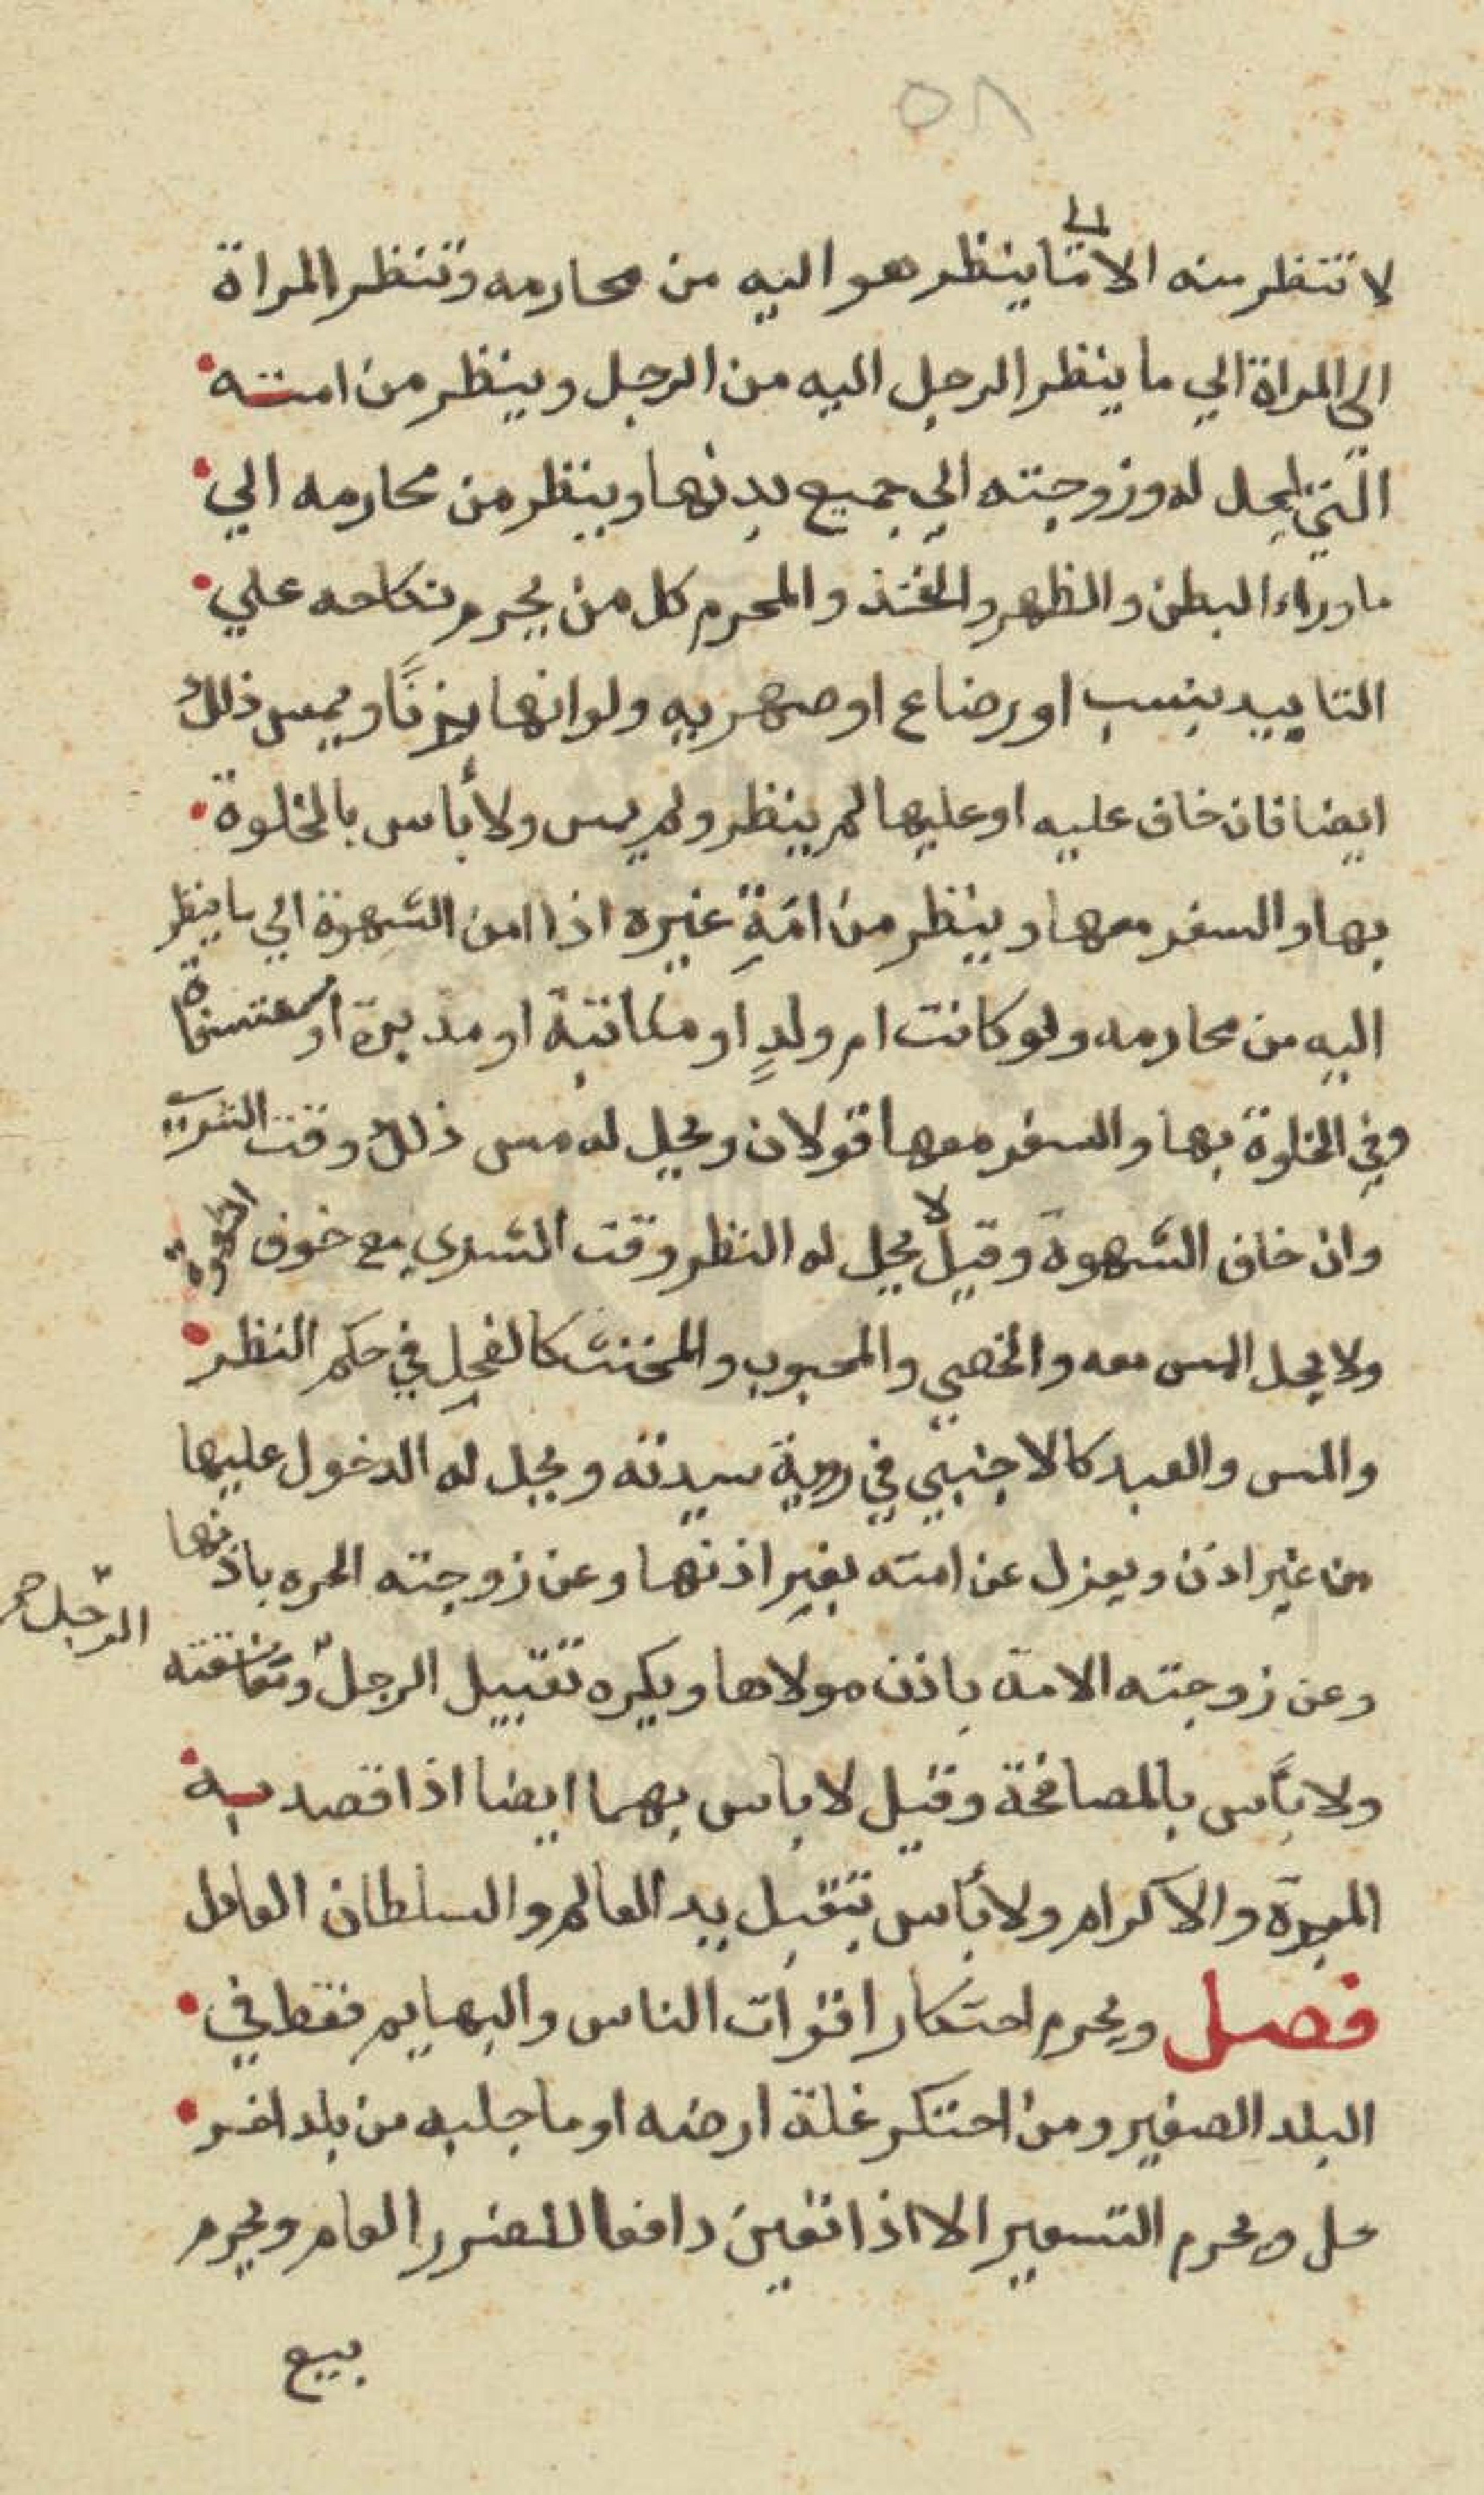 ٥٨
الى
لا تنظر منه الا ما ينظر هو اليه من محارمه وتنظر المراة
الى المراة الي ما ينظر الرجل اليه من الرجل وينظر من امته
الّتي تحل له وزوجته الي جميع بدنها وينظر من محارمه الي
ما وراء البطن والظهر والفخذ والمحرم كل من يحرم نكاحه علي
التابيد بنسب او رضاع او صهريه ولو انها بزنًا ويمس ذلك
ايضا فان خاف عليه او عليها لم ينظر ولم يمس ولا بأس بالخلوة
بها والسفر معها وينظر من امَةِ غيره اذا امن الشهوة الي ما ينظر
اليه من محارمه ولو كانت ام ولدٍ او مكاتبة او مدبرة او مستسعاة
وفي الخلوة بها والسفر معها قولان ويحل له مس ذلك وقت الشري
وان خاف الشهوة وقيل لا يحل له النظر وقت الشري مع خوف الشهوة
ولا يحل المس معه والخصي والمجبوب والمخنث كالفحل في حكم النظر
والمس والعبد كالاجنبي في روية سيدته ويحل له الدخول عليها
من غير اذن ويعزل عن امته بغير اذنها وعن زوجته الحره باذنها
وعن زوجته الامة باذن مولاها ويكره تقبيل الرجل ومعانقته
الرّجل صح
ولا بأس بالمصافحة وقيل لا باس بهما ايضا اذا قصد به
المبرة والاكرام ولا بأس بتقبل يد العالم والسلطان العادل
فصل ويحرم احتكار اقوات الناس والبهايم فقط في
البلد الصغير ومن احتكر غلة ارضه او ما جلبه من بلد اخر
حل ويحرم التسعير الا اذا تعين دافعا للضرر العام ويحرم
بيع